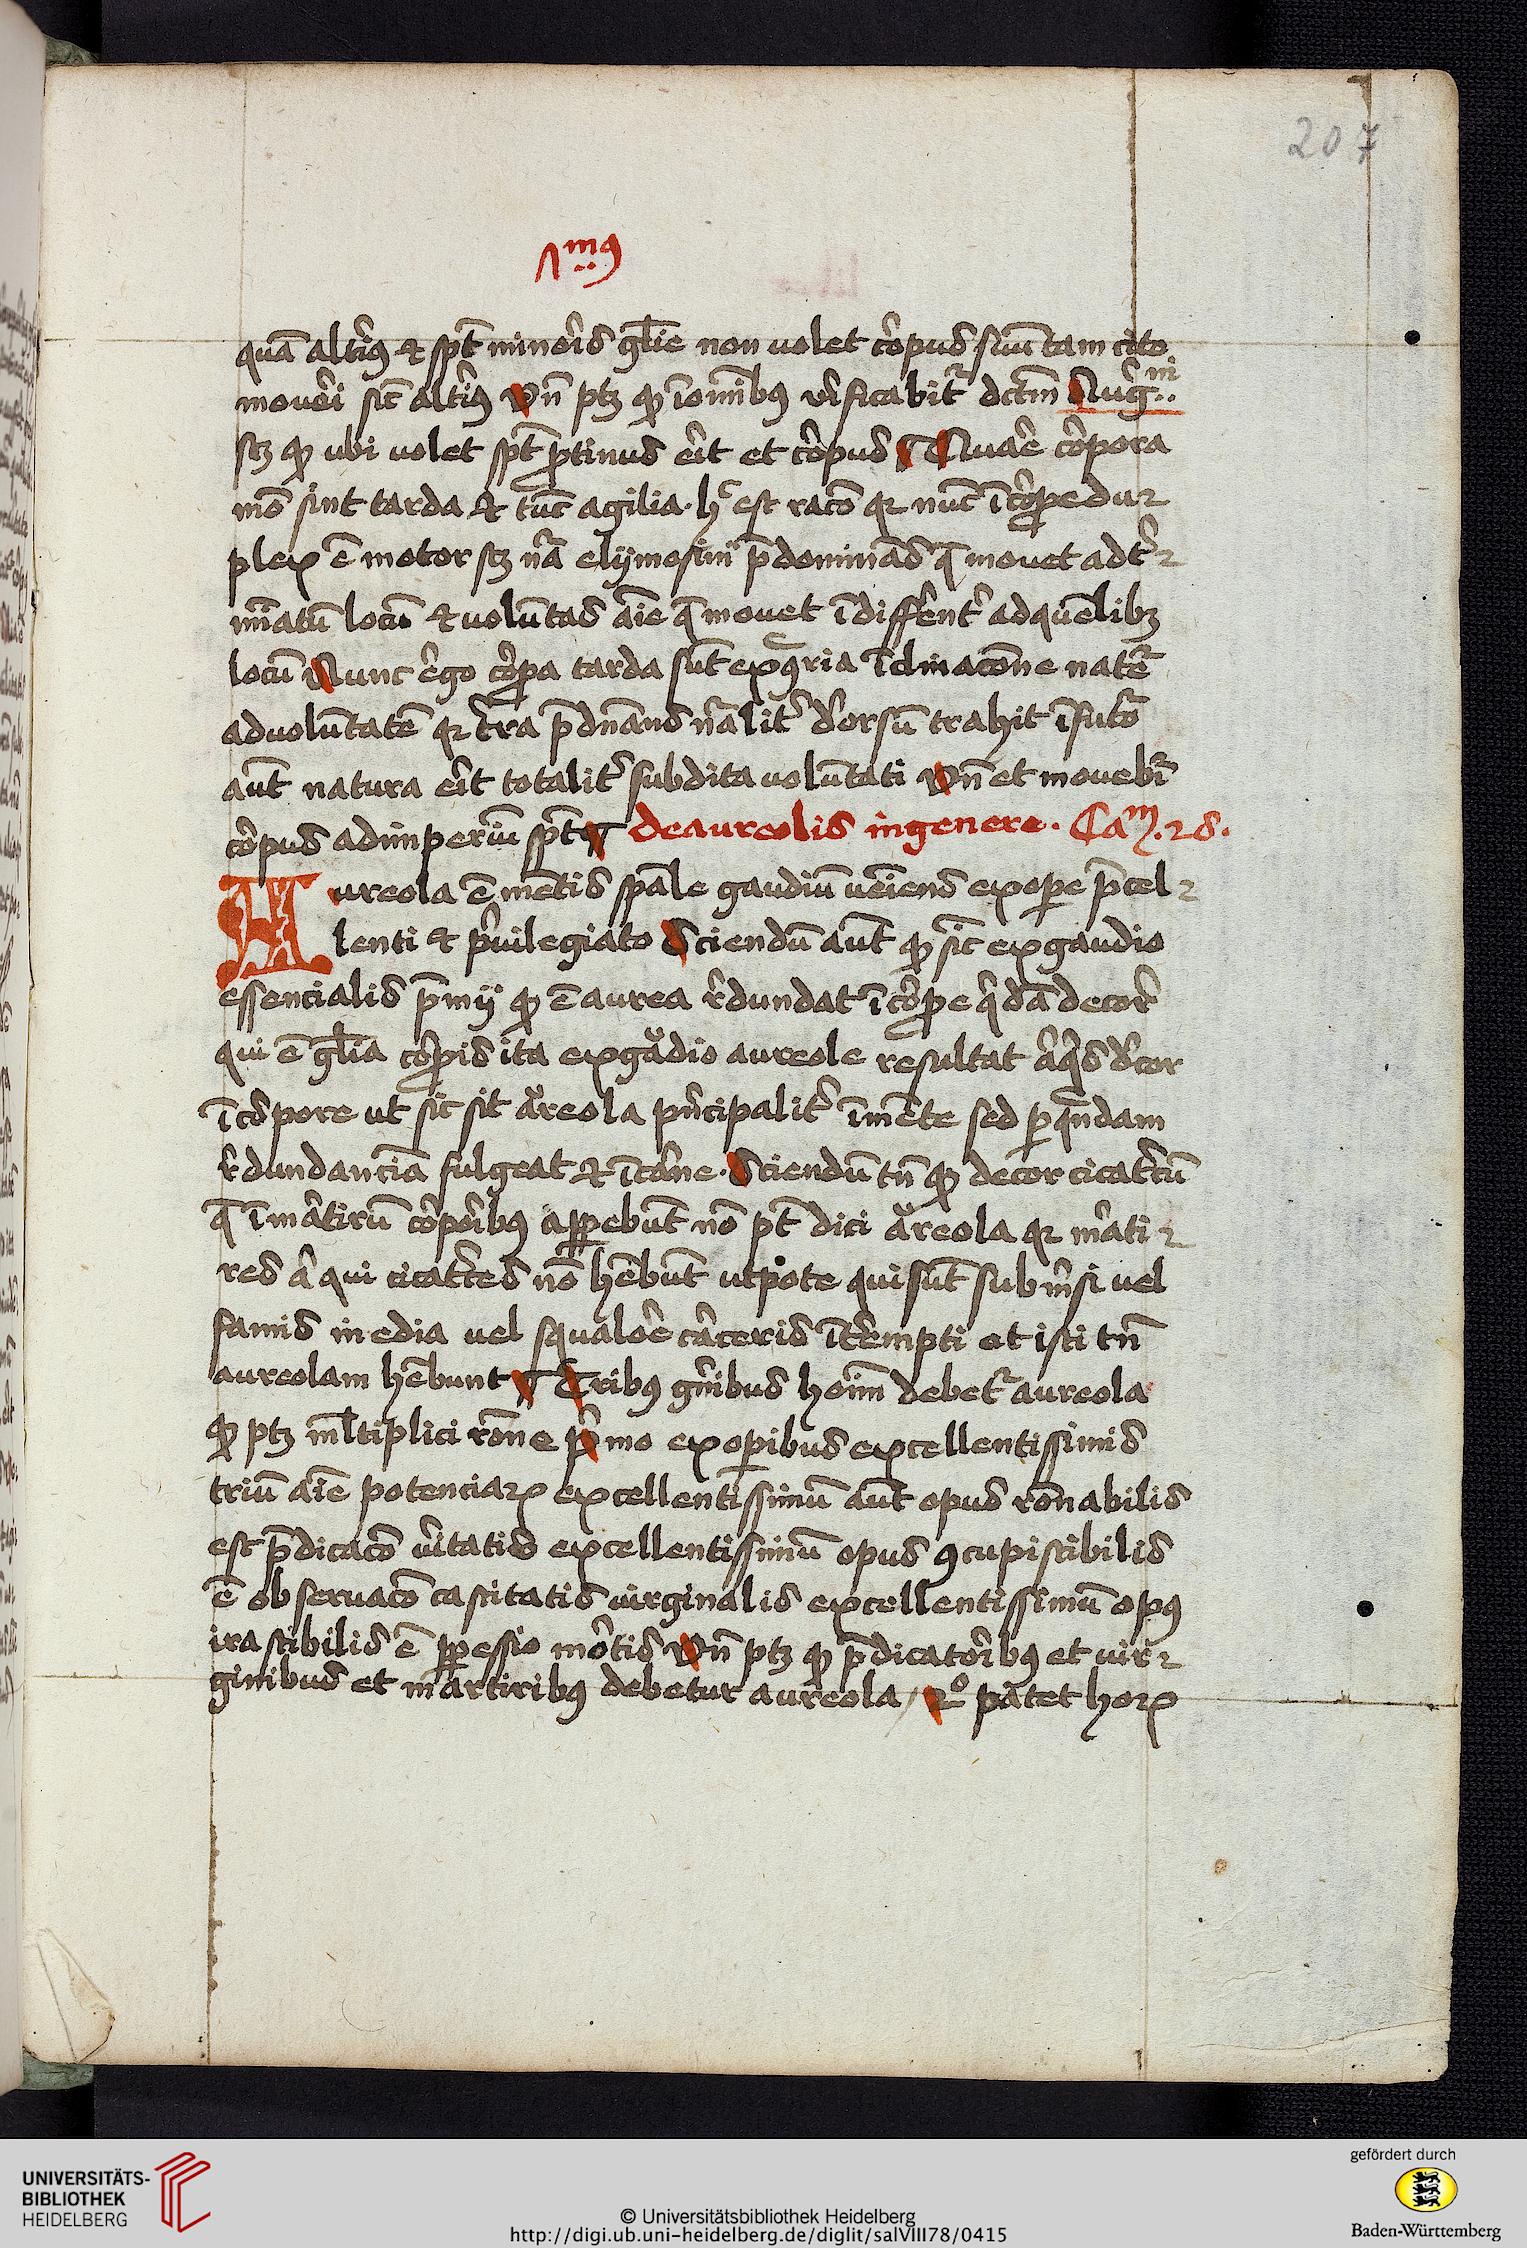 207
7mꝰ
quā altiꝰ & spt̄ minoris gl̄ie non uolet corpus suū tam cito
moueri sic̄ altiꝰ Vn̄ ptꝫ ꝙ ī oīnibꝰ v̄ificabit᷑ dc̄m Augꝰni
scꝫ ꝙ ubi uolet spt̄ ꝓtinus erit et corpus ¶ Quare corpora
mō sint tarda & tūc agilia · hͨ est racō qꝛ nūc ī corpe du
plex ē motor scꝫ nr̄a elymosini p̄dominās q̄ mouet ad t̓
mīatū locū & uolūtas aīe q̄ mouet īdiffent̓ ad quēlibꝫ
locū Nunc ergo corpa tarda sūt ex ꝯria īclinacōne nate᷑
ad uolūtatē qꝛ t̓ra p̄dn̄ans nr̄alit̓ dorsū trahit ī futō
aūt natura erit totalit̓ subdita uolūtati Vn̄ et mouebi᷑
corpus ad imperiū spt̄ ¶ de aureolis in genere · Cam̄ · 28 ·
Aureola ē mētis spāle gaudiū ueīens ex ope p̄cel
lenti & p̓uilegiato Sciendū aūt ꝙ sic̄ ex gaudio
essencialis p̄mij ꝙ ē aurea r̓dundat ī corpe qͥdā decor
qui ē gl̄ia corpis ita ex gaudio aureole resultat aͥqͥs dcor
ī corpore ut sic sit aureola pn̓cipalit̓ ī mēte sed p quādam
r̓dundanciā fulgeat & ī carne · Sciendū tn̄ ꝙ decor cicatcū
q̄ ī martirū corporibꝰ apꝑebūt nō pt̄ dici aureola qꝛ mrati
res a͛ qui cicatces nō hēbūt utpote qui sūt submsi uel
famis inedia uel squalore carceris ītempti et isti tn̄
aureolam hēbunt ¶ Tribꝰ gn̄ibus hoīm debet᷑ aureola
ꝙ ptꝫ ml̄tiplici rōne p̓mo ex opibus excellentissimis
triū aīe potenciaꝝ excellentissimū aūt opus rōnabilis
est p̄dicacō v̄itatis excellentissimū opus ꝯcupiscibilis
ē obseruacō castitatis uirginalis excellentissimū opꝰ
irascibilis ē ꝑpessio mortis Vn̄ ptꝫ ꝙ p̄dicatoribꝰ et uir
ginibus et martiribꝰ debetur aureola / 2º patet hoꝝ
UNIVERSITÄTS-
BIBLIOTHEK
HEIDELBERG
© Universitätsbibliothek Heidelberg
http://digi.ub.uni-heidelberg.de/diglit/salVIII78/0415
gefördert durch
Baden-Württemberg